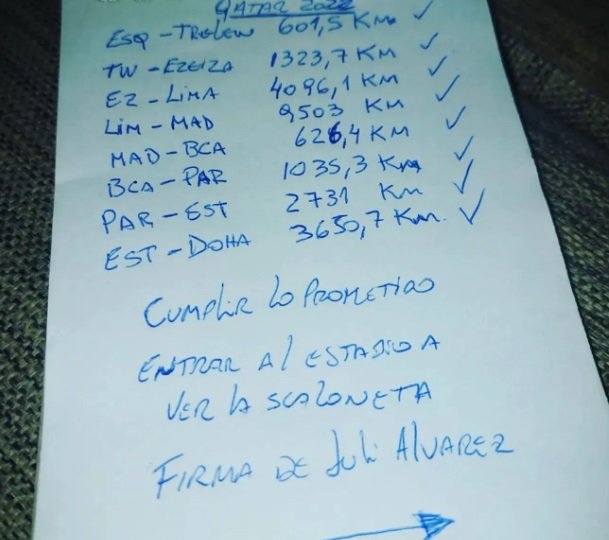 QATAR 2022
ESQ - TRELEW 601,5 Km ✓
TW - EZEIZA 1323,7 KM ✓
EZ - LIMA 4096,1 KM ✓
LIM - MAD 9503 KM ✓
MAD - BCA 626,4 KM ✓
BCA - PAR 1035,3 Km ✓
PAR - EST 2731 Km ✓
EST - DOHA 3650,7 Km. ✓
CUMPLIR LO PROMETIDO
ENTRAR Al ESTADIO A
VER LA SCALONETA
FIRMA DE Juli Alvarez